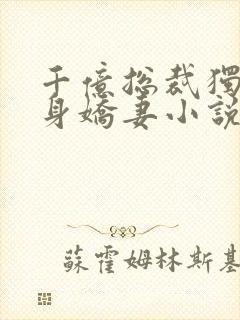 千億總裁獨
身嬌妻小説
蘇霍姆林斯基